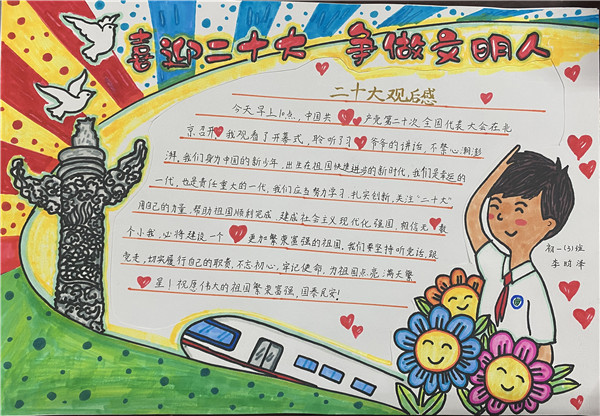 喜迎二十大 争做文明人
二十大观后感
今天早上10点，中国共产党第二十次全国代表大会在北
京召开，我观看了开幕式，聆听了习爷爷的讲话，不禁心潮澎
湃，我们身为中国的新少年，出生在祖国快速进步的新时代，我们是幸运的
一代，也是责任重大的一代，我们应当努力学习，扎实创新，关注“二十大”
用自己的力量，帮助祖国顺利完成 建成社会主义现代化强国，相信无数
个小我，必将建设一个更加繁荣富强的祖国，我们要坚持听党话，跟
党走，切实履行自己的职责，不忘初心，牢记使命，为祖国点亮满天繁
星！祝愿伟大的祖国繁荣富强，国泰民安！
初一（3）班
李明泽